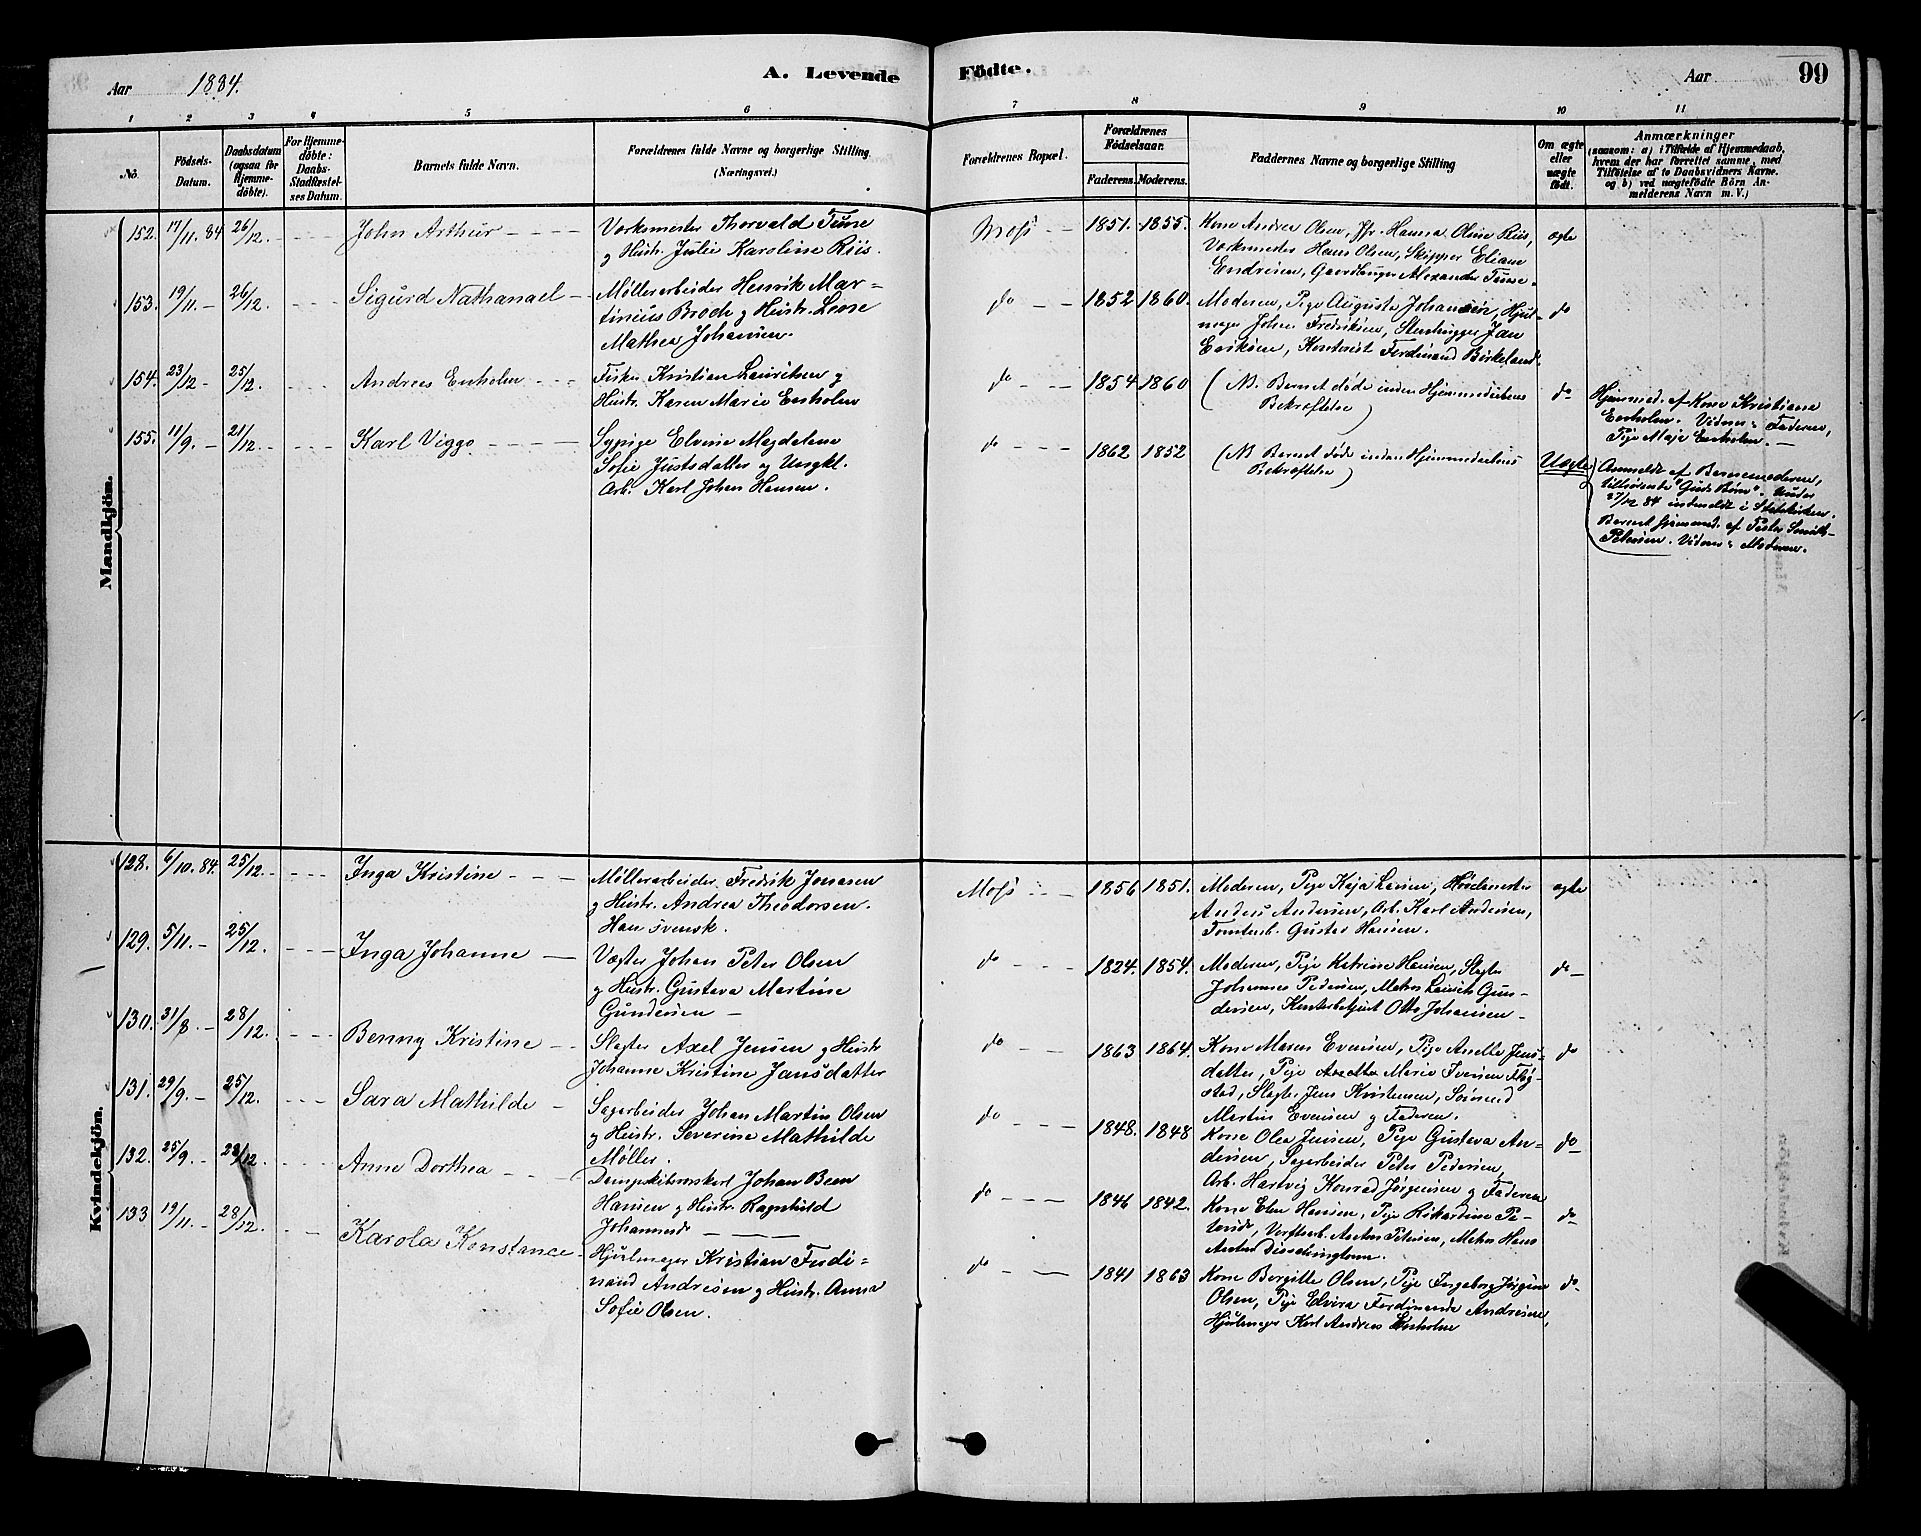 Aar 1884. A. Levende Födte. Aar 99
1 2 3 4 5 6 7 8 9 10 11
No. Födsels-Datum. Daabsdatum (ogsaa för Hjemmedöbte). For Hjemmedöbte: Daabs-Stadfæstelses Datum. Barnets fulde Navn. Forældrenes fulde Navne og borgerlige Stilling. (Næringsvei.) Forældrenes Bopæl. Forældrenes Fødselsaar. Faderens. Moderens. Faddernes Navne og borgerlige Stilling Om ægte eller uægte födt. Anmærkninger (saasom: a) i Tilfælde af Hjemmedaab, hvem der har forrettet samme, med Tilföielse af to Daabsvidners Navne. og b) ved uægtefödte Börn Anmelderens Navn m. V.)
Mandkjön.
152. 17/11. 84 26/12. John Arthur Værksmester Thorvald Tune
g Hustr. Julie Karoline Riis.
Moss 1851. 1855. Kone Andrea Olsen, Jfr. Hanna Oline Riis,
Værksmester Hans Olsen, Skipper Eliam
Endresen, Gaardbruger Alexander Tune.
ægte
153. 19/11. 26/12. Sigurd Nathanael Møllerarbeider Henrik Mar-
tinius Brock g Hustr. Leone
Mathea Johansen.
do 1852 1860. Moderen, Pige Augusta Johansen, Hjul-
mager Johan Fredriksen, Stenhugger Jan
Eriksen, Kontorist Ferdinand Birkeland.
do
154. 23/12 25/12. Andreas Enholm Fisker Kristian Lauritsen g
Hustr. Karen Marie Enholm
do 1854 1860 (NB. Barnet døde inden Hjemmedaabens
Bekræftelse)
do Hjemmed. af Kone Kristiane
Enholm. Vidner: Faderen,
Pige Maje Enholm.
155. 11/9. 21/12. Karl Viggo Sypige Elvine Magdalene
Sofie Justsdatter g Ungkl.
Arb. Karl Johan Hansen.
do 1862 1852 (NB Barnet døde inden Hjemmedaabens
Bekræftelse)
Uægte Anmeldt af Barnemoderen,
tilhørende "Guds Børn". Under
27/12 84 indmeldt i Statskirken.
Barnet hjemmed. af Pastor Smith-
Petersen. Vidner: Moderen.
Kvindekjön.
128. 6/10. 84. 25/12. Inga Kristine Møllerarbeider Fredrik Jonasen
g Hustr. Andrea Theodorsen.
Han svensk.
Moss 1856 1851. Moderen, Pige Kaja Larsen,
Anders Andersen, Arb. Karl Andersen,
Tomtearb. Gustav Hansen.
ægte
129. 5/11. 25/12. Inga Johanne Vægter Johan Peter Olsen
g Hustr. Gustava Martine
Gundersen
do 1824. 1854. Moderen, Pige Katrine Hansen, Slagter
Johannes Pedersen, Matros Laurits Gun-
dersen, Kontorbetjent Otto Johansen
do
130. 31/8. 28/12. Benny Kristine Slagter Axel Jensen g Hustr
Johanne Kristine Jansdatter
do 1863 1864. Kone Maren Evensen, Pige Anette Jens-
datter, Pige Anette Marie Iversen Flog-
stad, Slagter Jens Kristensen, Sömand
Martin Evensen g Faderen.
do
131. 29/9. 25/12. Sara Mathilde Sagarbeider Johan Martin Olsen
g Hustr. Severine Mathilde
Møller.
do 1848. 1848 Kone Olea Jensen, Pige Gustava An-
dersen, Sagarbeider Peter Pedersen,
Arb. Hartvig Konrad Jørgensen g Faderen
do
132. 25/9. 28/12. Anne Dorthea Dampskibsmskarl Johan Been
Hansen g Hustr. Ragnhild
Johannesd.
do 1846 1842. Kone Elen Hansen, Pige Rikardine Pe-
tersd., Værftsarb. Anton Petersen, Matros Hans
Anton
do
133 19/11. 28/12. Karola Konstance Hjulmager Kristian Ferdi-
nand Andresen g Hustr. Anna
Sofie Olsen.
do 1841 1863 Kone Borgille Olsen, Pige Ingeborg Jørgine
Olsen, Pige Elvira Ferdinande Andresen,
Hjulmager Karl Andreas Enholm
do